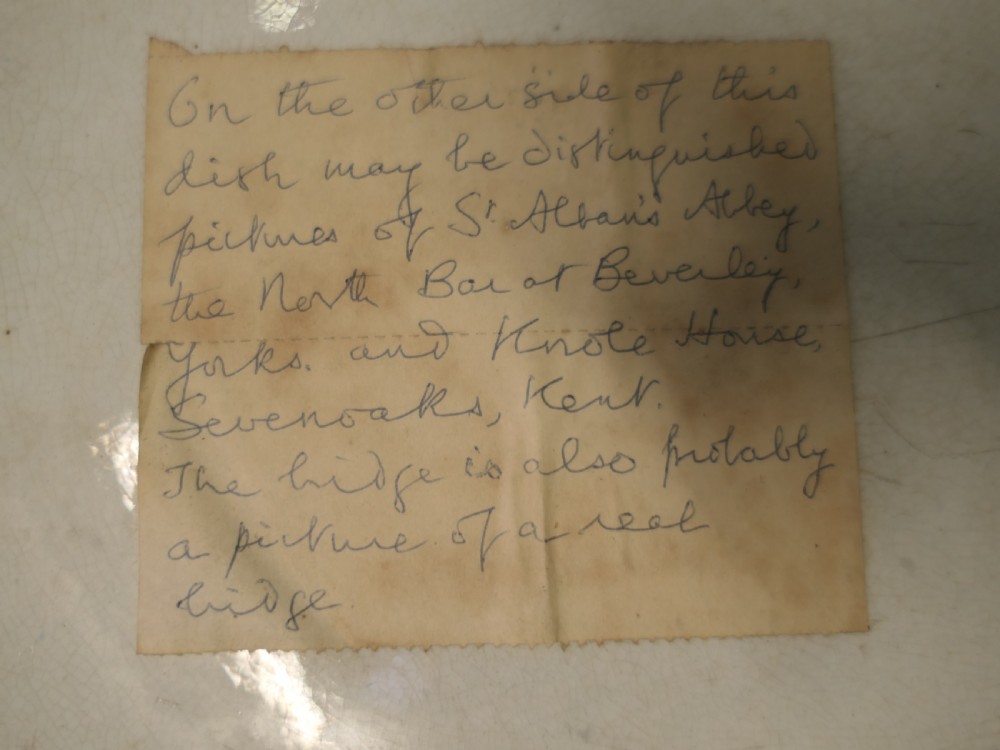 On the other side of this
dish may be distinguished
pictures of St. Alban's Abbey,
the North Bar at Beverley,
Yorks. and Knole House,
Sevenoaks, Kent.
The bridge is also probably
a picture of a real
bridge